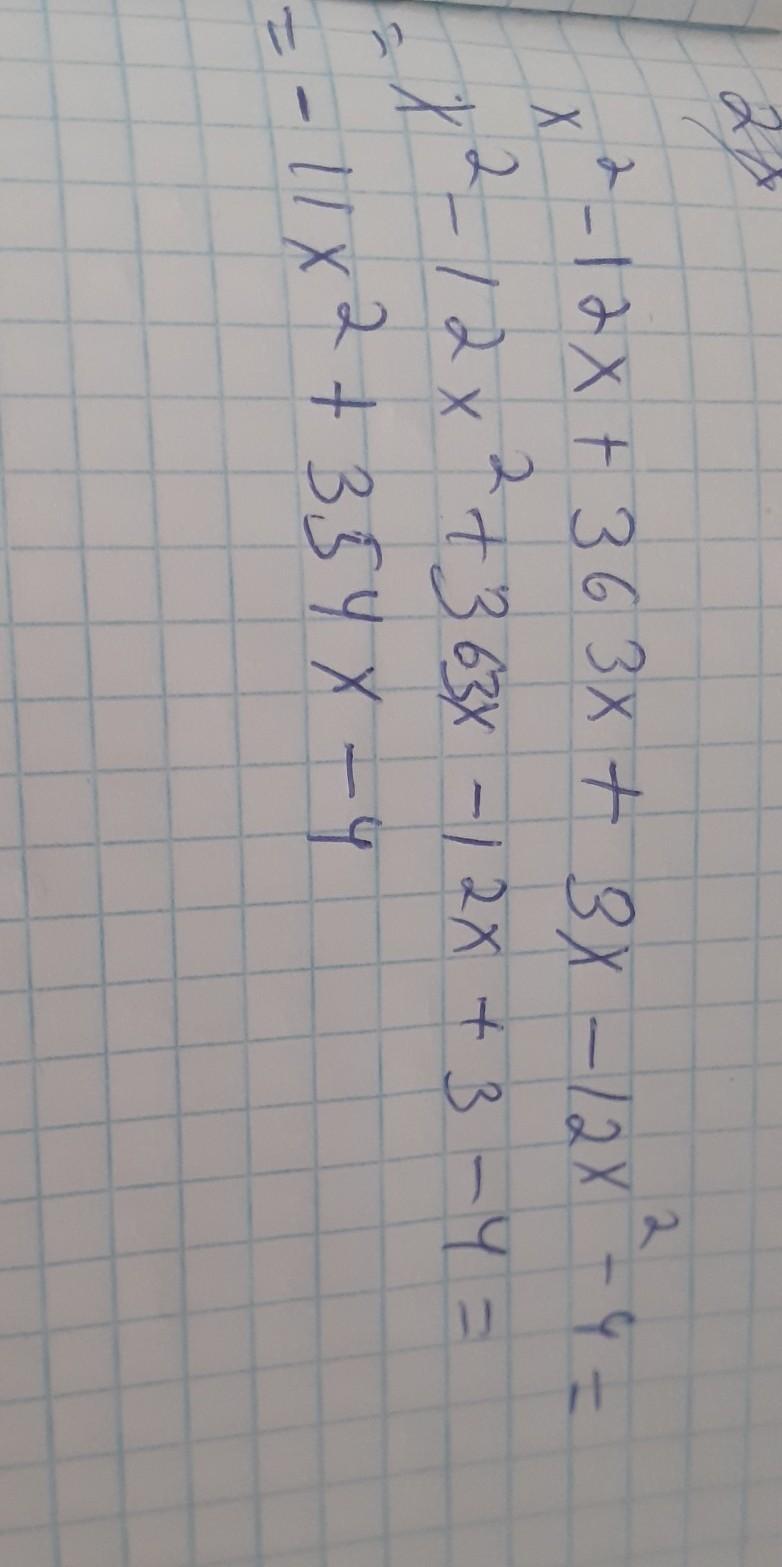 x² - 12x + 363x + 3x - 12x² - 4 =
= x² - 12x² + 363x - 12x + 3 - 4 =
= - 11x² + 354x - 4